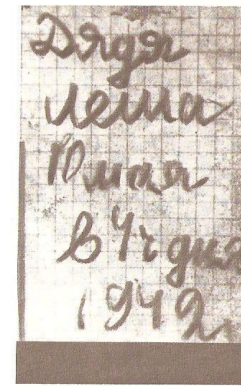 Дядя
Леша
10 мая
в 4 ч дня
1942